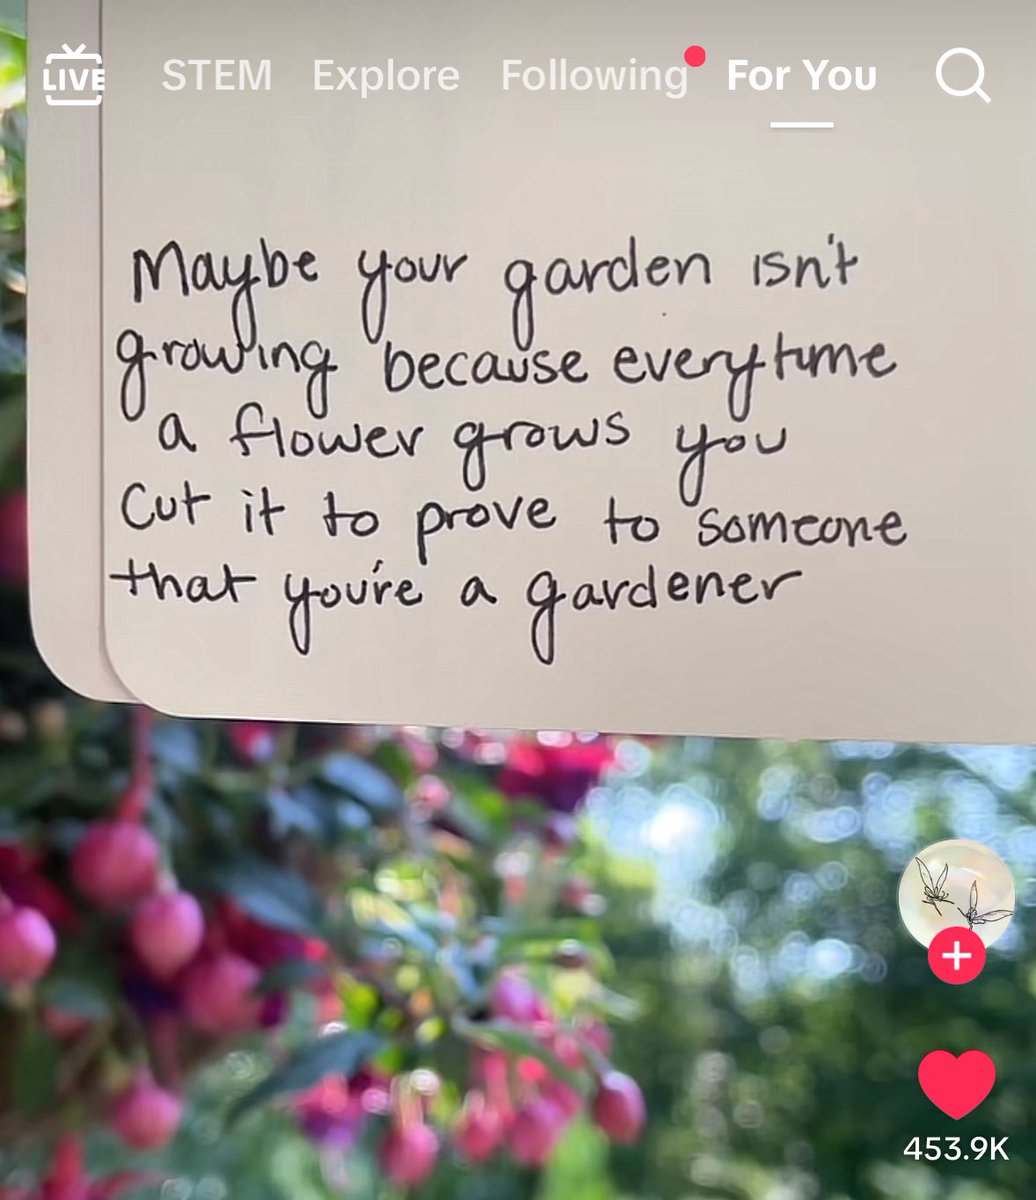 LIVE STEM Explore Following For You
Maybe your garden isn't
growing because everytime
a flower grows you
cut it to prove to someone
that you're a gardener
453.9K